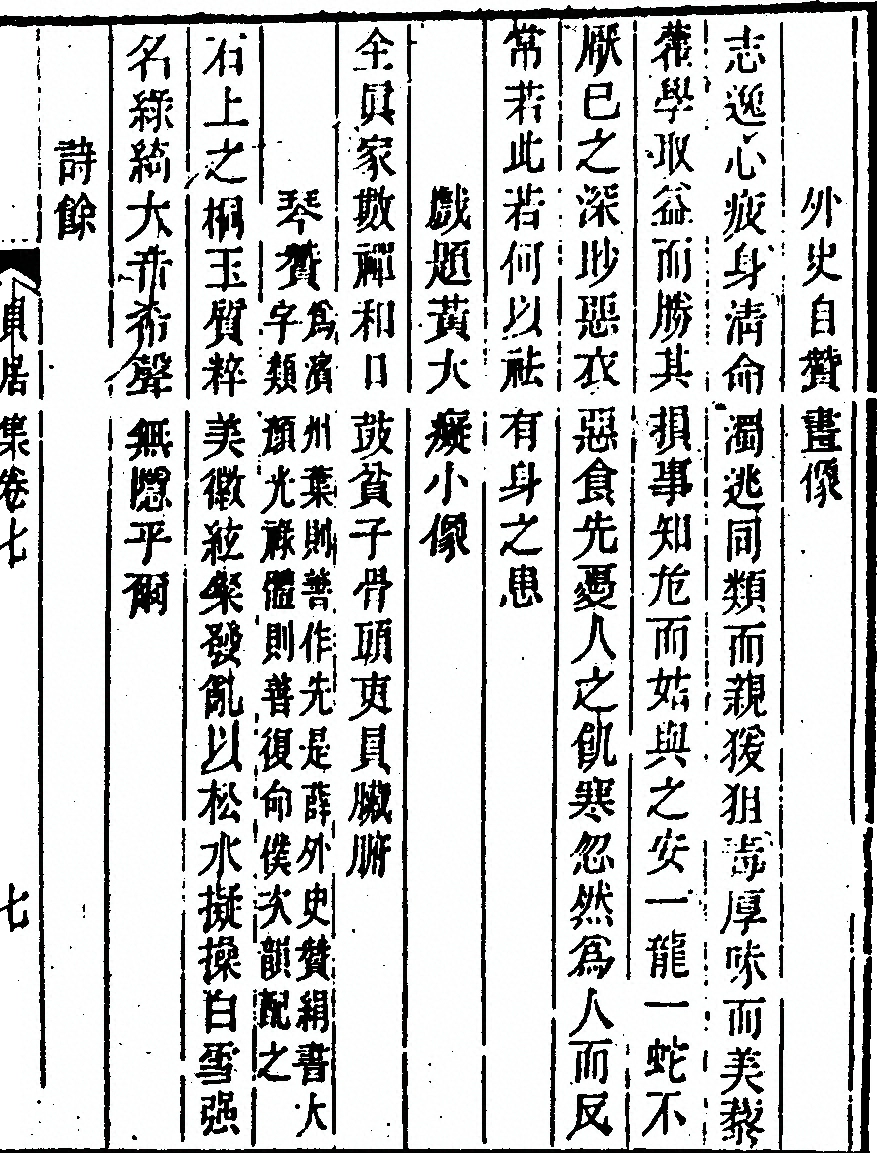 外史自贊畫像
志逸心疲身清命濁逃同類而親猨狙壽厚味而美藜
藿學取益而勝其損事知危而姑與之安一龍一蛇不
厭巳之深眇惡衣惡食先憂人之飢寒忽然為人而反
常若此若何以祛有身之患
戲題黃大癡小像
全眞家數禪和口鼓貧子骨頭吏員臟腑
琴贊為濱州葉則善作先是薛外史贊絹書大
字類顏光祿體則善復命僕次韻配之
石上之桐玉質粹美徽絃粲發亂以松水擬操白雪强
名綠綺大音希聲無隱乎爾
詩餘
貞居集卷七
七